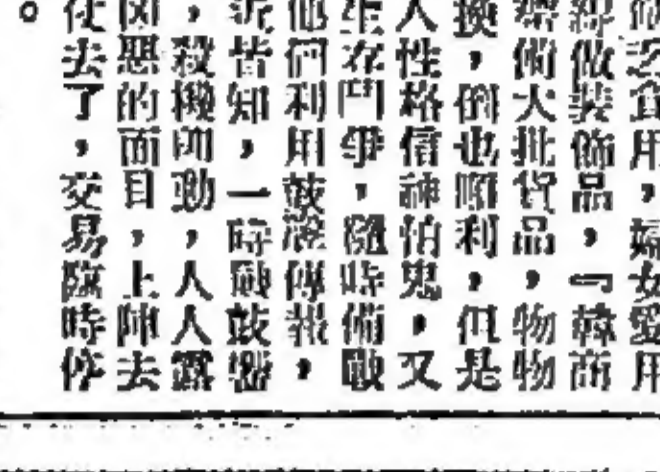 之食用，婦女愛用
做裝飾品，「韓商
備大批貨品，物物
換，倒也順利，但是
人性格信神怕鬼，又
在鬥爭，隨時備戰
他們利用鼓聲傳報，
近皆知，一時戰鼓響
，殺機即動，人人露
凶惡的面目，上陣去
去了，交易臨時停
。